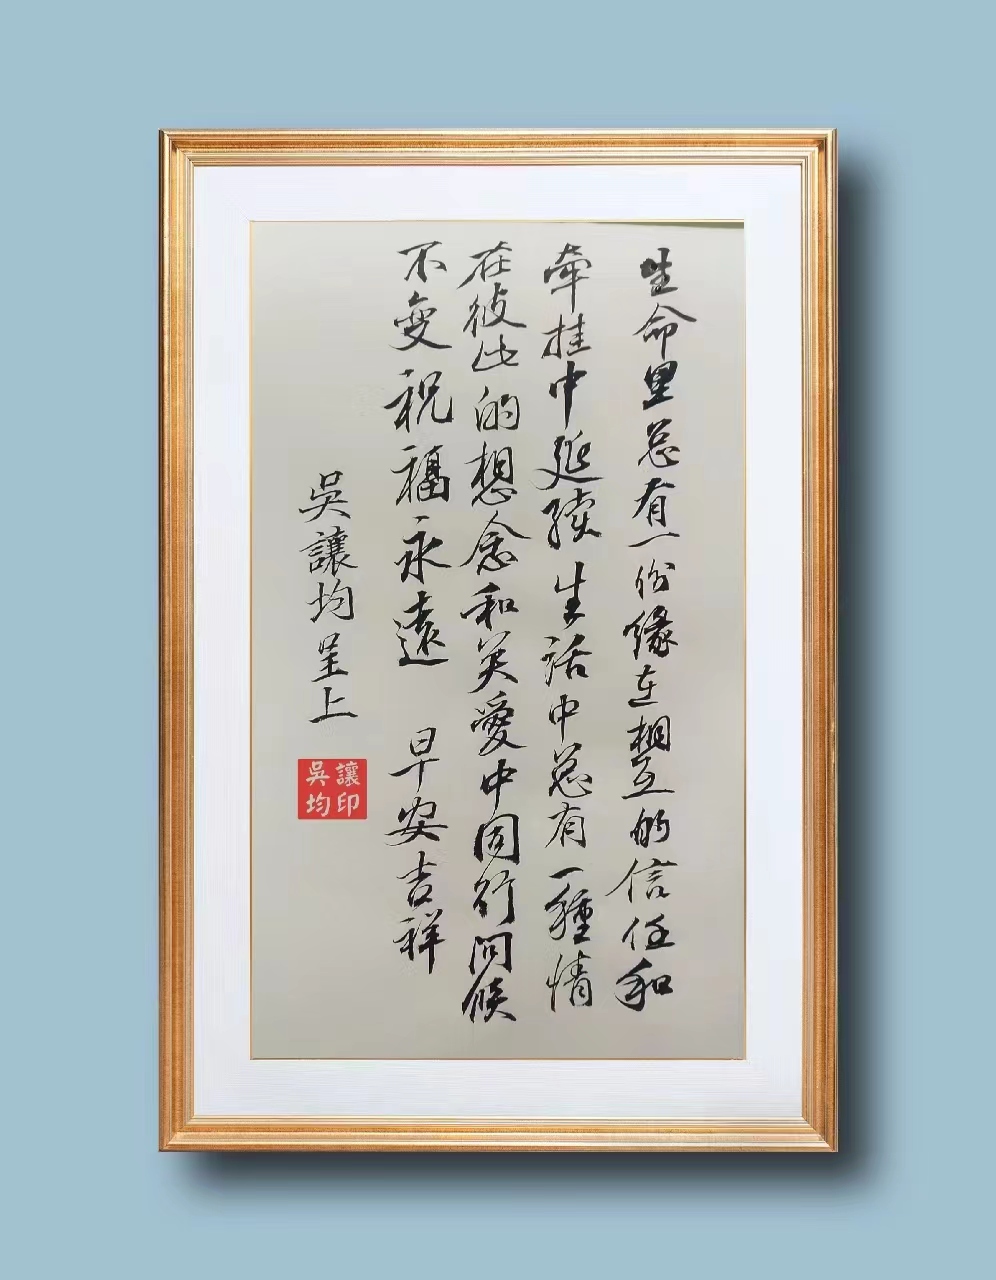 生命里总有一份缘在相互的信任和
牵挂中延续 生活中总有一種情
在彼此的想念和关愛中同行问候
不变祝福永遠 早安吉祥
吳讓均呈上
讓印
吳均